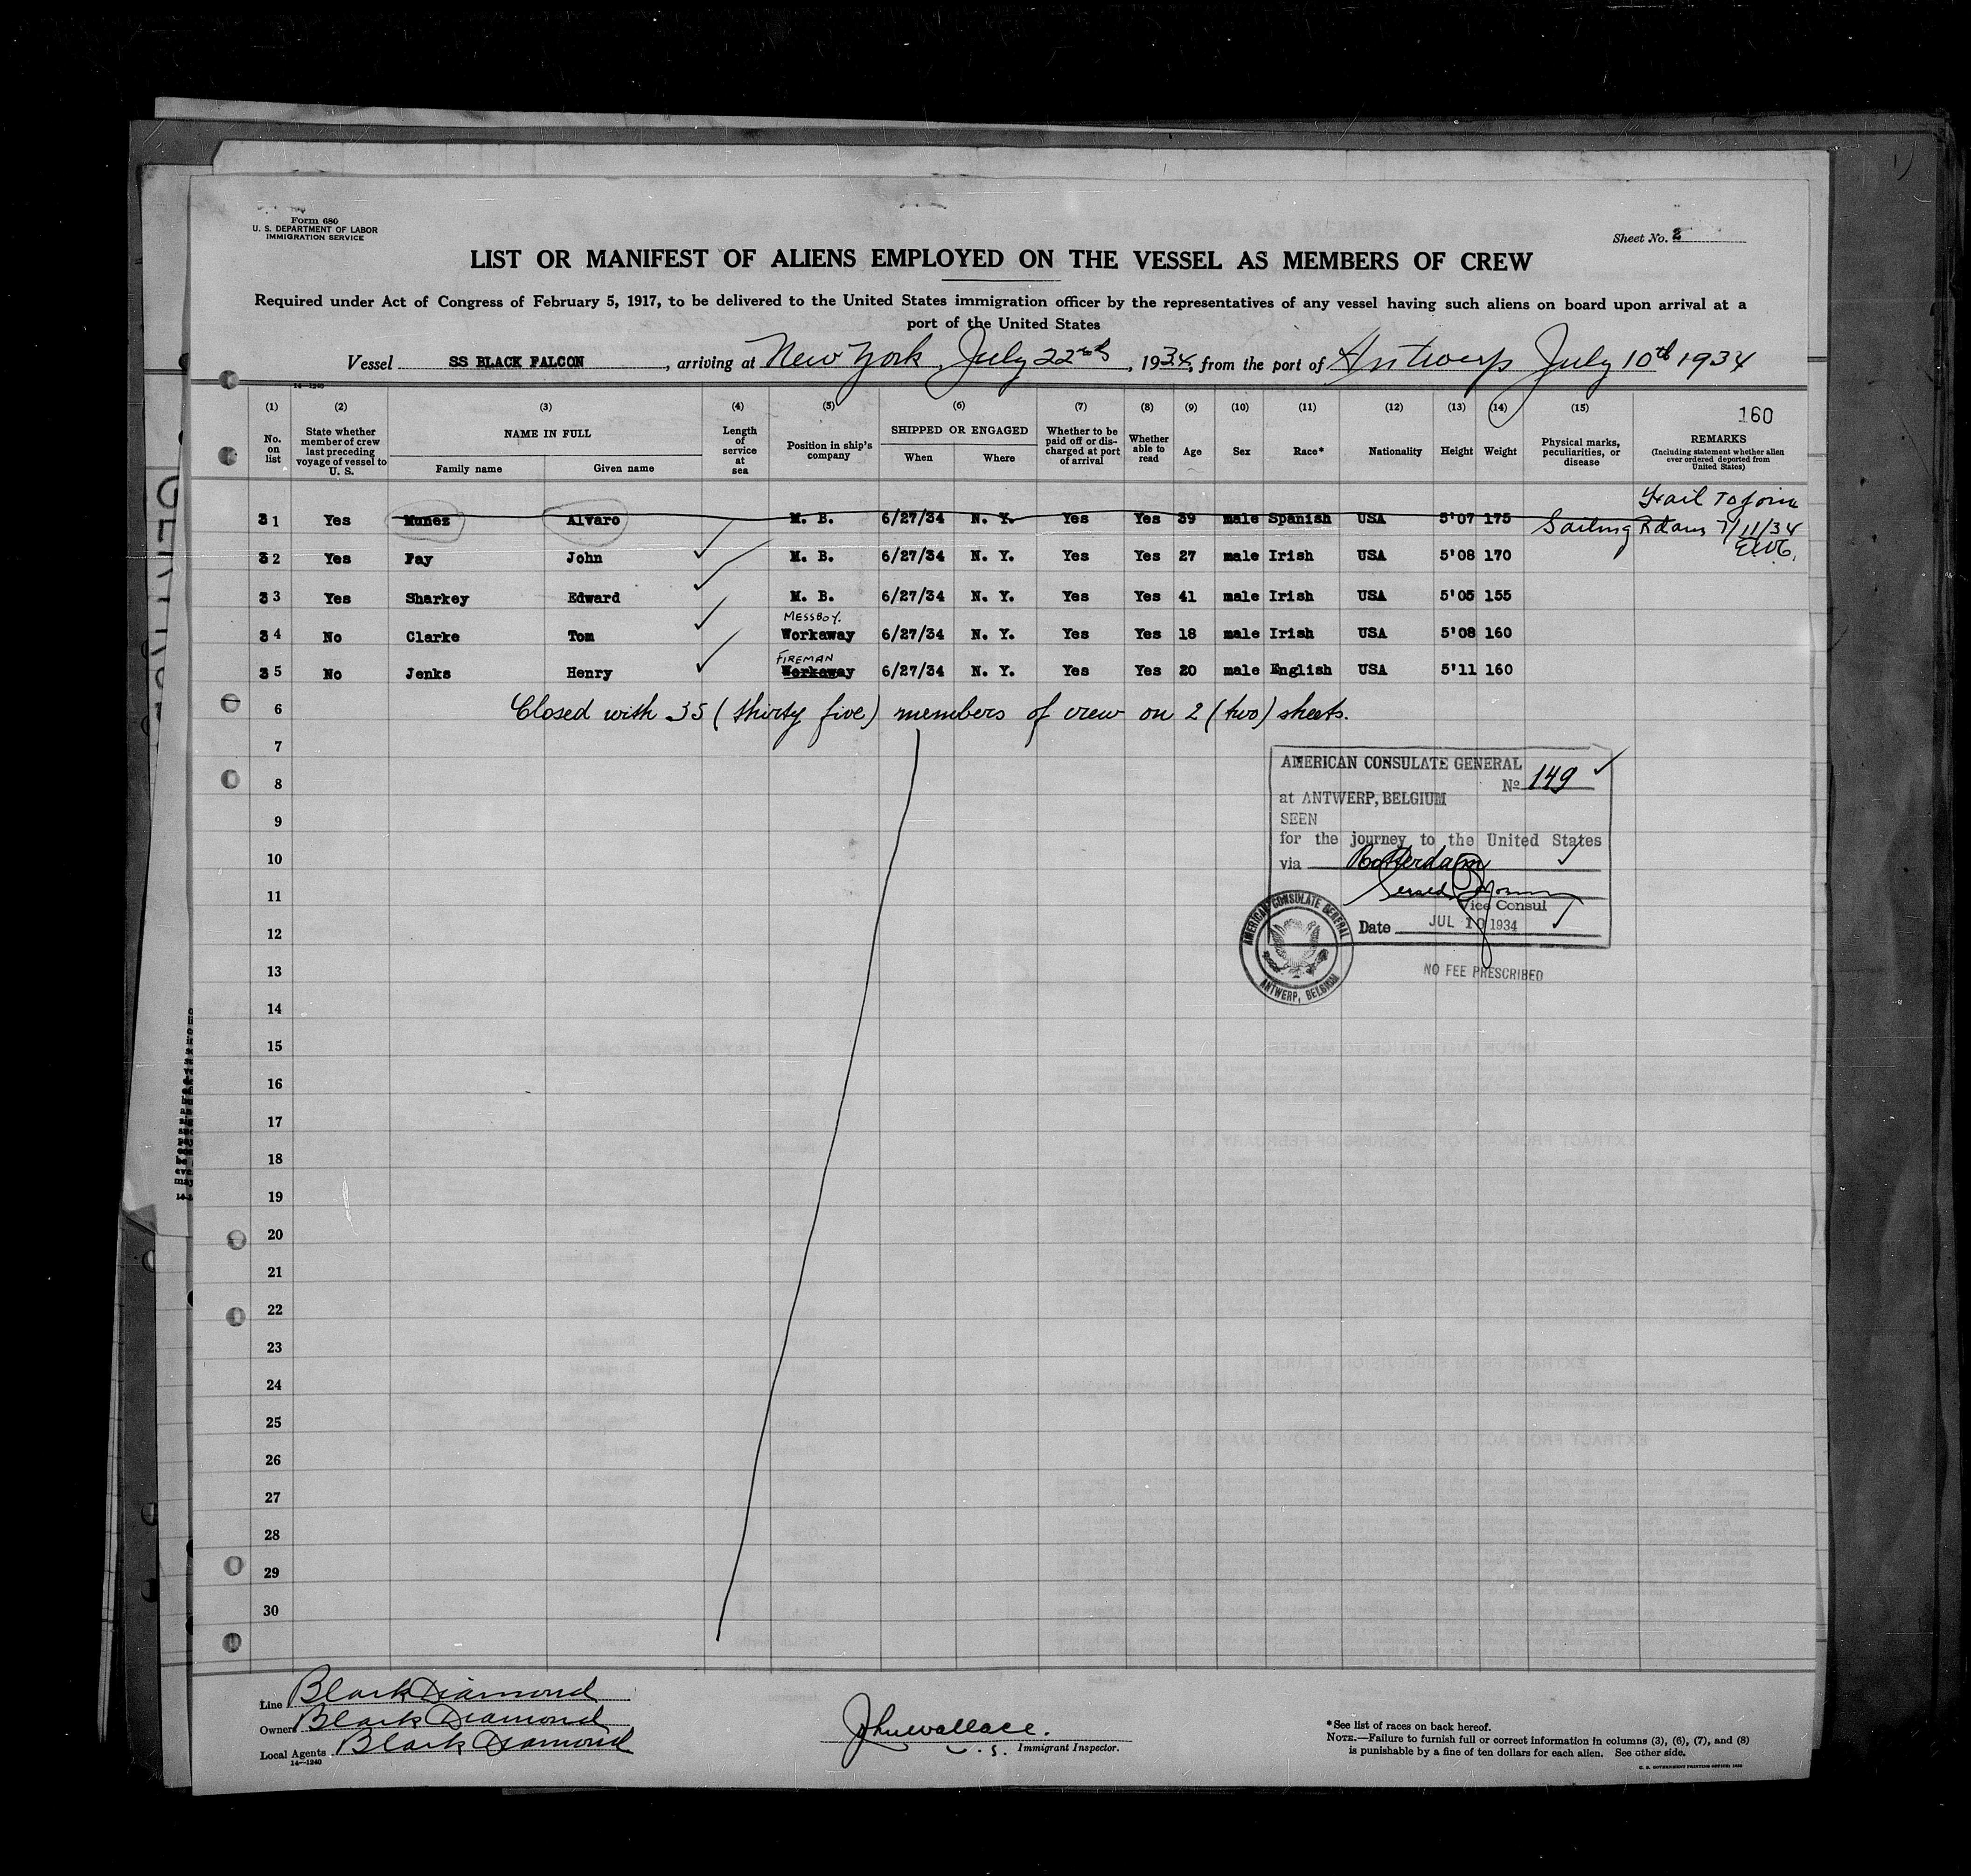 Form 680
U. S. DEPARTMENT OF LABOR
IMMIGRATION SERVICE
Sheet No. 2
LIST OR MANIFEST OF ALIENS EMPLOYED ON THE VESSEL AS MEMBERS OF CREW
Required under Act of Congress of February 5, 1917, to be delivered to the United States immigration officer by the representatives of any vessel having such aliens on board upon arrival at a
port of the United States
Vessel SS BLACK FALCON, arriving at New York July 22nd, 1934, from the port of Antwerp July 10th 1934
14-1240
(1) (2) (3) (4) (5) (6) (7) (8) (9) (10) (11) (12) (13) (14) (15) 160
No. on list
State whether member of crew last preceding voyage of vessel to U. S.
NAME IN FULL
Family name
Given name
Length of service at sea
Position in ship's company
SHIPPED OR ENGAGED
When
Where
Whether to be paid off or discharged at port of arrival
Whether able to read
Age
Sex
Race*
Nationality
Height
Weight
Physical marks, peculiarities, or disease
REMARKS
(Including statement whether alien ever ordered deported from United States)
Fail To Join
31 Yes Munez Alvaro M. B. 6/27/34 N. Y. Yes Yes 39 male Spanish USA 5'07 175
Sailing Rdam 7/11/34
32 Yes Fay John M. B. 6/27/34 N. Y. Yes Yes 27 male Irish USA 5'08 170
33 Yes Sharkey Edward M. B. 6/27/34 N. Y. Yes Yes 41 male Irish USA 5'05 155
MESSBOY.
34 No Clarke Tom Workaway 6/27/34 N. Y. Yes Yes 18 male Irish USA 5'08 160
FIREMAN
35 No Jenks Henry Workaway 6/27/34 N. Y. Yes Yes 20 male English USA 5'11 160
6 Closed with 35 (thirty five) members of crew on 2 (two) sheets.
7
8
9
10
11
12
13
14
15
16
17
18
19
20
21
22
23
24
25
26
27
28
29
30
AMERICAN CONSULATE GENERAL
No 149
at ANTWERP, BELGIUM
SEEN
for the journey to the United States
via Rotterdam
Vice Consul
Date JUL 10 1934
AMERICAN CONSULATE GENERAL
ANTWERP, BELGIUM
NO FEE PRESCRIBED
Line Black Diamond
Owners Black Diamond
Local Agents Black Diamond
14-1240
Jhn Wallace.
U. S. Immigrant Inspector.
*See list of races on back hereof.
NOTE.—Failure to furnish full or correct information in columns (3), (6), (7), and (8)
is punishable by a fine of ten dollars for each alien. See other side.